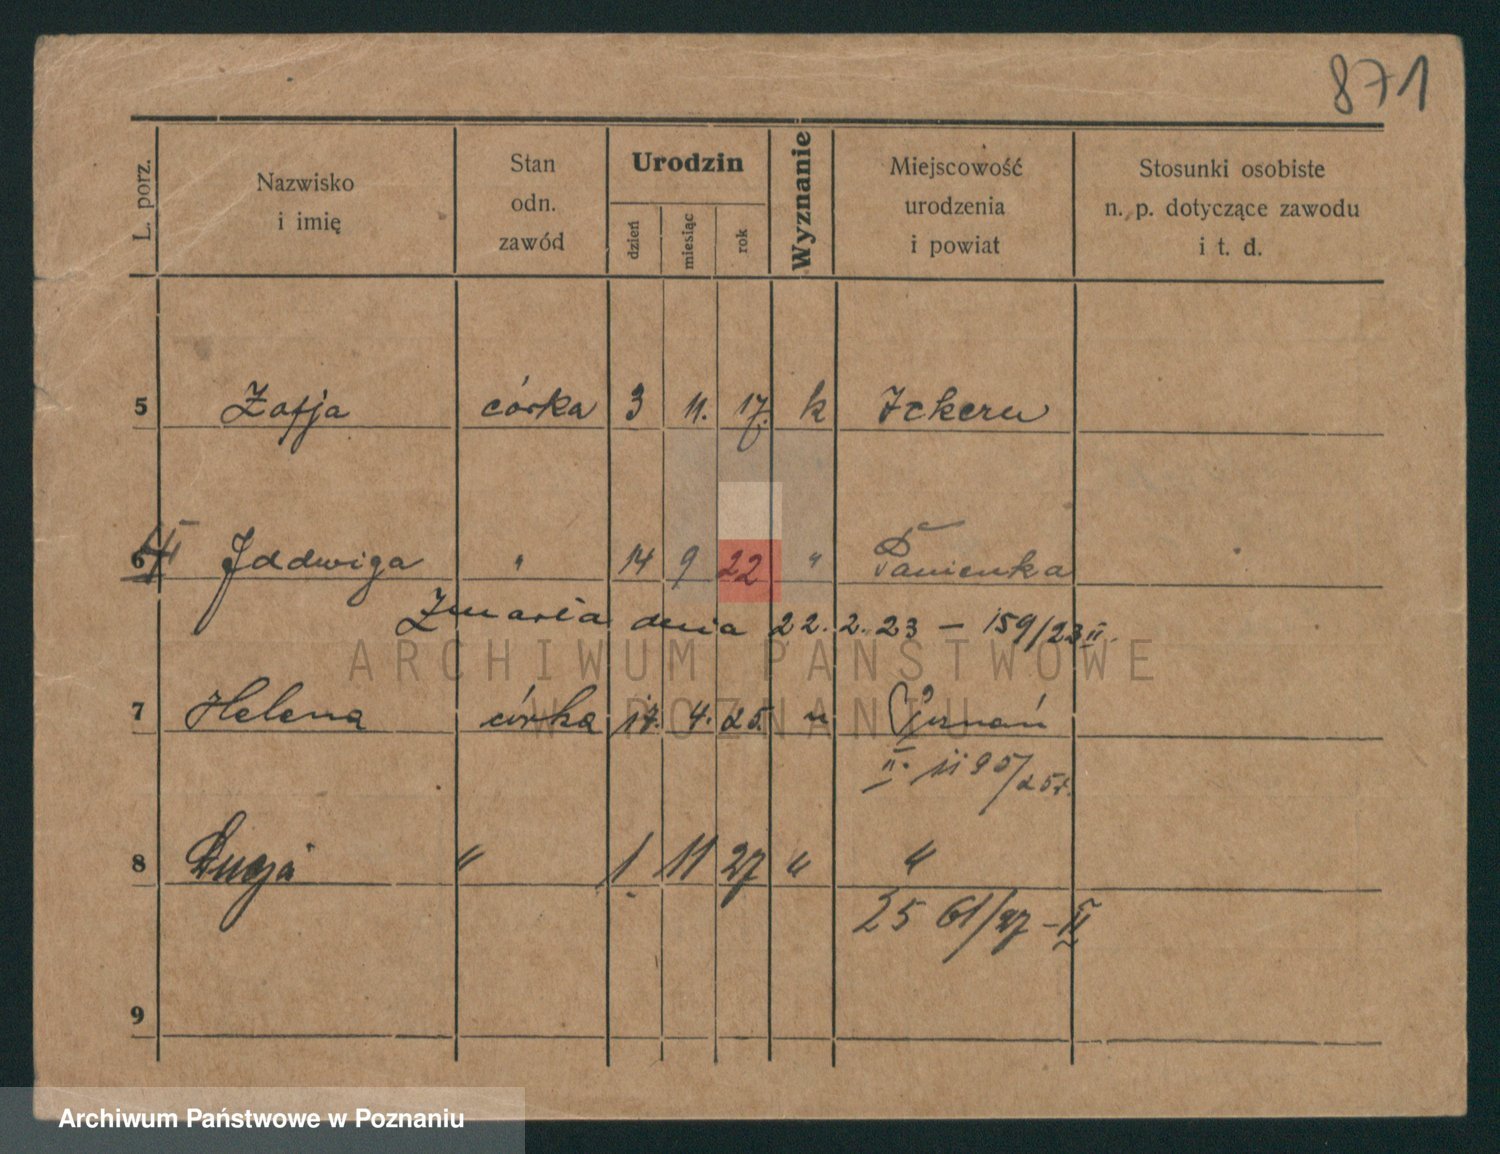 871
L. porz.
Nazwisko i imię
Stan odn. zawód
Urodzin
dzień miesiąc rok
Wyznanie
Miejscowość urodzenia i powiat
Stosunki osobiste n. p. dotyczące zawodu i t. d.
5 Zofja córka 3 11. 17. k Ickern
6 Jadwiga " 14 9 22 "
Zmarła dnia 22. 2. 23 — 159/23 II.
7 Helena córka 17. 4. 25. " Poznań
II. 1195/25r.
8 Łucja " 1 11 27 " "
25 61/27 - II
9
ARCHIWUM PAŃSTWOWE
W POZNANIU
Archiwum Państwowe w Poznaniu